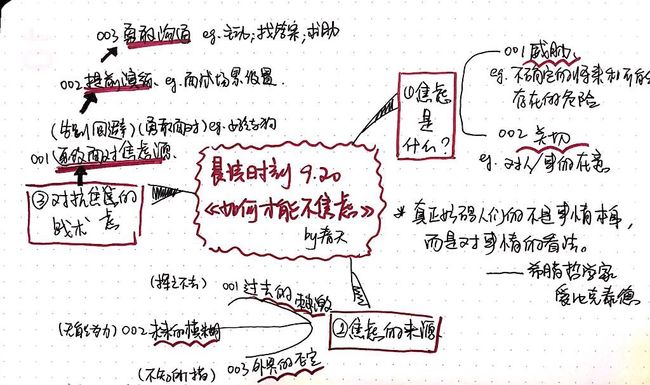 003 勇敢沟通 eg. 主动;找答案;求助
002 提前演练. eg. 面试场景设置.
(告别回避)(勇敢面对) eg.
001 勇敢面对焦虑源.
③对抗焦虑的
战术
晨读时刻 9.20
《如何才能不焦虑》
by春天
①焦虑
是
什么?
001 威胁.
eg. 不确定的将来和可能
存在的危险
002 关切
eg. 对人/事的在意
* 真正困扰人们的不是事情本身,
而是对事情的看法.
——希腊哲学家
爱比克泰德
②焦虑的来源.
(挥之不去) 001 过去的刺激
(无能为力) 002 未来的模糊
(不知所措) 003 外界的否定